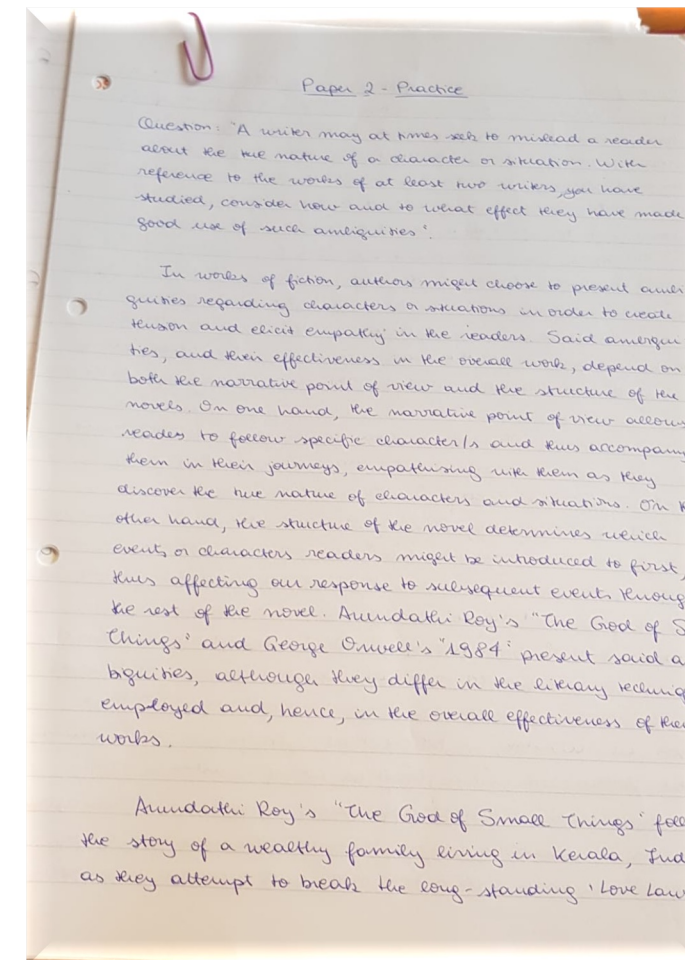 Paper 2 - Practice
Question: "A writer may at times seek to mislead a reader
about the true nature of a character or situation. With
reference to the works of at least two writers, you have
studied, consider how and to what effect they have made
good use of such ambiguities".
In works of fiction, authors might choose to present ambi
guities regarding characters or situations in order to create
tension and elicit empathy in the readers. Said ambigui
ties, and their effectiveness in the overall work, depend on
both the narrative point of view and the structure of the
novels. On one hand, the narrative point of view allows
readers to follow specific character/s and thus accompany
them in their journeys, empathising with them as they
discover the true nature of characters and situations. On t
other hand, the structure of the novel determines which
events or characters readers might be introduced to first,
thus affecting our response to subsequent events throug
the rest of the novel. Arundathi Roy's "The God of S
Things" and George Orwell's "1984" present said a
biguities, although they differ in the literary techniq
employed and, hence, in the overall effectiveness of the
works.
Arundathi Roy's "The God of Small Things" foll
the story of a wealthy family living in Kerala, Ind
as they attempt to break the long-standing 'Love Law